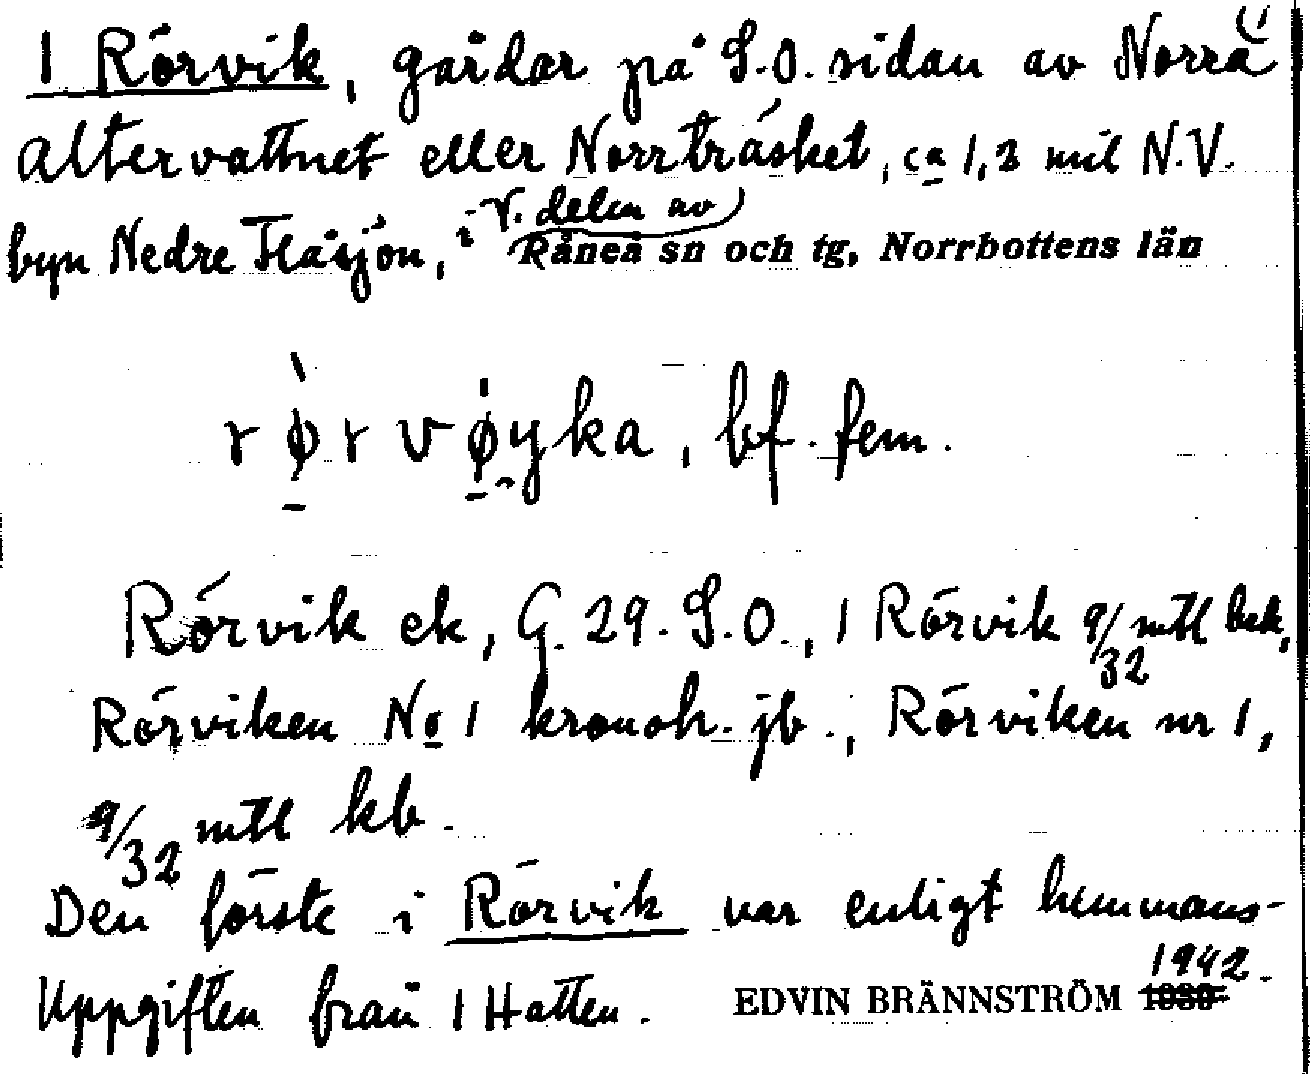 1 Rörvik, gårdar på S.O. sidan av Norra
Altervattnet eller Norrträsket, ca 1,2 mil N.V.
byn Nedre Flåsjön, i V. delen av Råneå sn och tg, Norrbottens län
rø̀rvøyka, bf. fem.
Rörvik ek, G. 29. S.O., 1 Rörvik 9/32 mtl bek,
Rörviken No 1 kronoh. jb., Rörviken nr 1,
9/32 mtl kb.
Den förste i Rörvik var enligt hemmans-
uppgiften från 1 Hatten. EDVIN BRÄNNSTRÖM 1942.